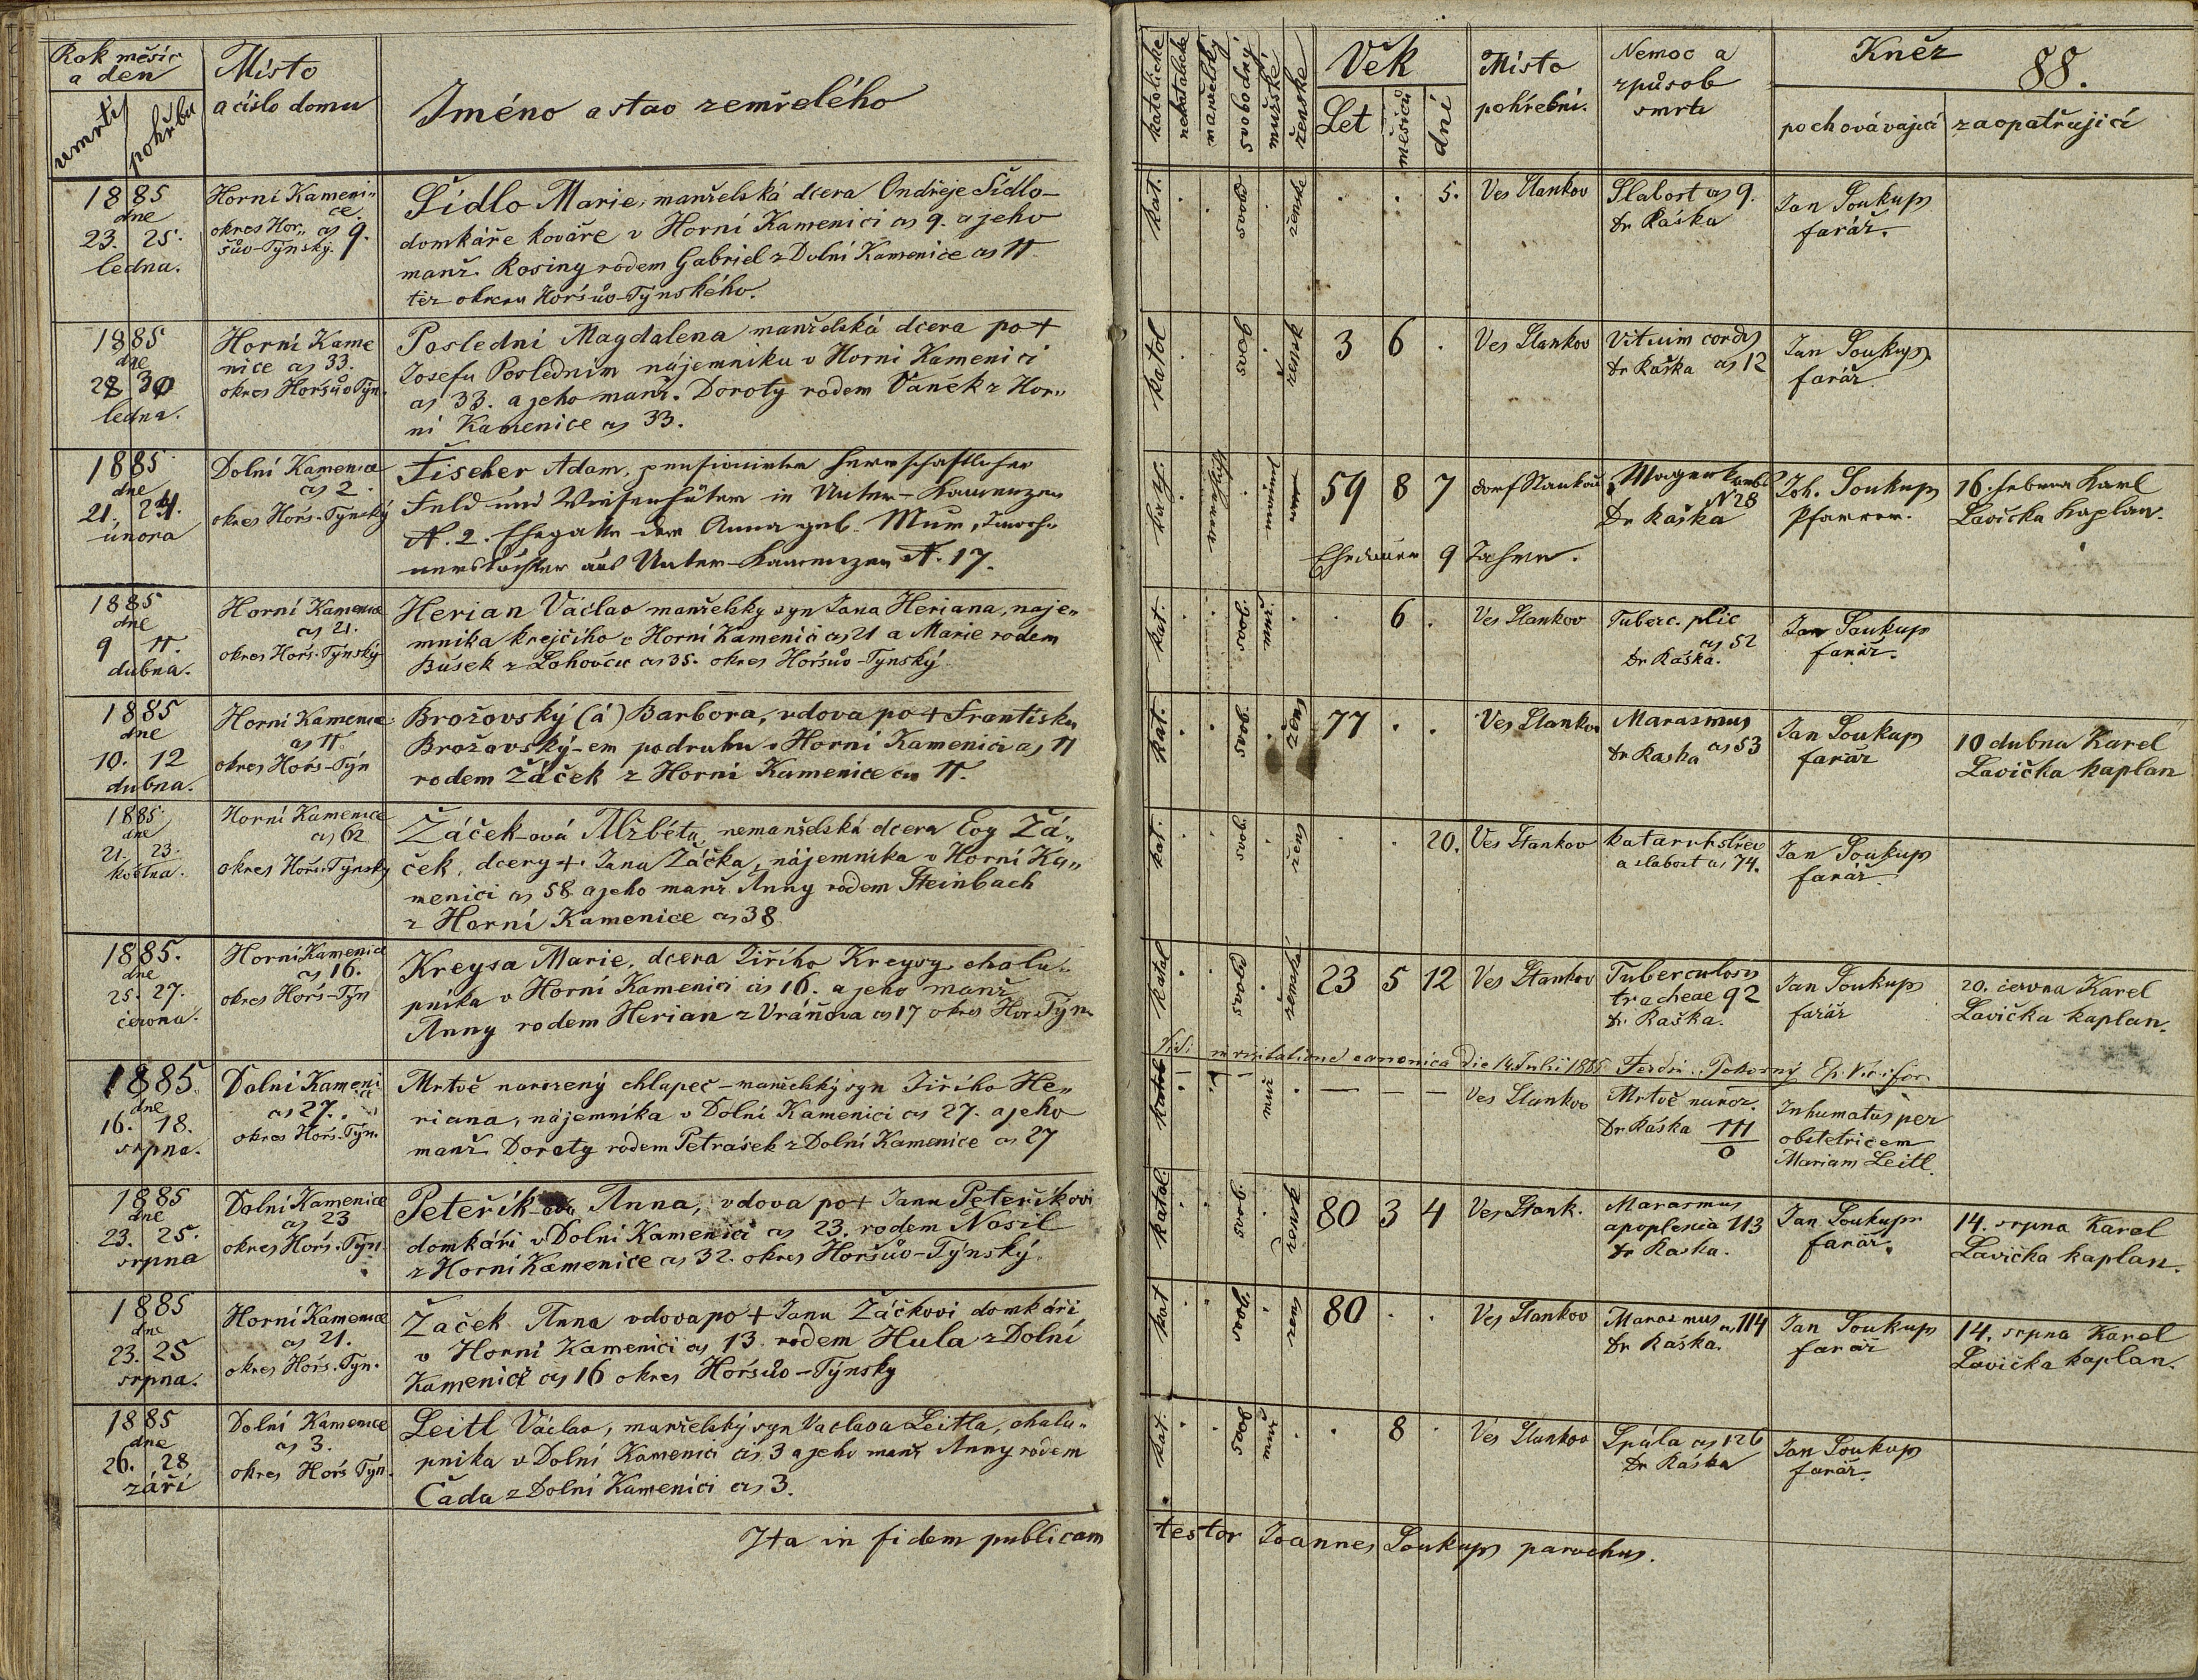 Rok měsíc
a den
úmrtí
pohřbu
Místo
a číslo domu
Jméno a stav zemřelého
1885
dne
23. 25.
ledna.
Horní Kameni„
ce.
okres Hor„ čs 9.
šův-Týnský.
Šídlo Marie, manželská dcera Ondřeje Šídlo
domkáře kováře v Horní Kamenici čs 9. a jeho
manž. Rosiny rodem Gabriel z Dolní Kamenice čs 11
téz okresu Horšův-Týnského.
1885
dne
28 30
ledna.
Horní Kame
nice čs 33.
okres Horšův Týn.
Poslední Magdalena manželská dcera po +
Josefu Posledním nájemníku v Horní Kamenici
čs 33. a jeho manž. Doroty rodem Vaněk z Hor„
ní Kamenice čs 33.
1885
dne
21. 24.
února
Dolní Kamenice
čs 2.
okres Horš.-Týnský
Fischer Adam, pensionirter herrschaftlicher
Feld und Wiesenhüter in Unter-Kamenzen
N. 2. Ehegatte der Anna geb. Mur, Inwoh„
nerstochter aus Unter-Kamenzen N. 17.
1885
dne
9 11.
dubna.
Horní Kamenice
čs 21.
okres Horš.-Týnský
Herian Václav manželský syn Jana Heriana, náje„
mníka krejčího v Horní Kamenici čs 21 a Marie rodem
Bušek z Lohovčic čs 35. okres Horšův-Týnský
1885
dne
10. 12
dubna.
Horní Kamenice
čs 11.
okres Horš-Týn
Brožovský (á) Barbora, vdova po + Františku
Brožovský-em podruhu v Horní Kamenici čs 11
rodem Žáček z Horní Kamenice čs 11.
1885.
dne
21. 23.
května.
Horní Kamenice
čs 62
okres Horš.-Týnský
Žáček-ová Alžběta, nemanželská dcera Evy Žá„
ček, dcery +. Jana Žáčka, nájemníka v Horní Ka„
menici čs 58 a jeho manž. Anny rodem Steinbach
z Horní Kamenice čs 38
1885.
dne
25. 27.
června.
Horní Kamenice
čs 16.
okres Horš-Týn
Kreysa Marie, dcera Jiřího Kreysy, chalu„
pníka v Horní Kamenici čs 16. a jeho manž.
Anny rodem Herian z Vráňova čs 17 okres Hor.Týn.
1885
dne
16. 18.
srpna.
Dolní Kameni
ci
čs 27.
okres Horš.-Týn.
Mrtvě narozený chlapeč – manželský syn Jiřího He„
riana, nájemníka v Dolní Kamenici čs 27. a jeho
manž. Doroty rodem Petrašek z Dolní Kamenice čs 27
1885
dne
23. 25.
srpna
Dolní Kamenice
čs 23
okres Horš.-Týn
Peteřík-ova Anna, vdova po + Janu Peteříkovi
domkáři v Dolní Kamenici čs 23. rodem Nosil
z Horní Kamenice čs 32. okres Horšův-Týnský
1885
dne
23. 25
srpna.
Horní Kamenice
čs 21.
okres Horš.-Týn.
Žáček Anna vdova po + Janu Žáčkovi domkáři
v Horní Kamenici čs 13. rodem Hula z Dolní
Kamenice čs 16 okres Horšův-Týnsky
1885
dne
26. 28
září
Dolní Kamenice
čs 3.
okres Horš Týn.
Leitl Václav, manželský syn Vaclava Leitla, chalu„
pníka v Dolní Kamenici čs 3 a jeho manž Anny rodem
Čada z Dolní Kamenici čs 3.
Ita in fidem publicam
katolické
nekatolické
manželský
svobodný
mužské
ženské
Věk
Let
měsíců
dní
Místo
pohřební.
Nemoc a
způsob
smrti
Kněz
88.
pochovávající
zaopatřující
kat. svob ženské . . 5. Ves Stankov
Slabost čs 9.
Dr Raška
Jan Soukup
farář.
katol svob žensk 3 6 . Ves Stankov
Vitium cordis
Dr Raška čs 12
Jan Soukup
farář
59 8 7 Dorf Stankau
Magenkrebs
N 28
Dr Raška
Joh. Soukup
Pfarrer.
16. Februar Karl
Lavička Kaplan.
Ehedauer 9 Jahre.
kat. svob muž . 6 . Ves Stankov
Tuberc. plic
čs 52
Dr Raška.
Jan Soukup
farář.
kat. svob žen 77 . . Ves Stankov
Marasmus
Dr Raska čs 53
Jan Soukup
farář
10 dubna Karel
Lavička kaplan
kat. svob žen . . 20. Ves Stankov
katarrh střev
a slabost čs 74.
Jan Soukup
farář.
katol svob žensk 23 5 12 Ves Stankov
Tuberculosis
tracheae 92
Dr. Raška.
Jan Soukup
farář
20. června Karel
Lavička kaplan.
Vidi in visitatione canonica die 14. Julii 1885 Ferdin. Pokorný Ep. Vic. for.
katol muž — — — Ves Stankov
Mrtvě naroz.
Dr Raška 111
0
Inhumatus per
obstetricem
Mariam Leitl.
katol. svob 80 3 4 Ves Stank.
Marasmus
apoplexia 113
Dr Raska.
Jan Soukup
farář.
14. srpna Karel
Lavička kaplan.
kat svob žen 80 . . Ves Stankov
Marasmus čs 114
Dr Raška.
Jan Soukup
farář
14. srpna Karel
Lavička kaplan.
kat. svob muž . 8 . Ves Stankov
Spála čs 126
Dr Raška
Jan Soukup
farář.
testor Joannes Soukup parochus.